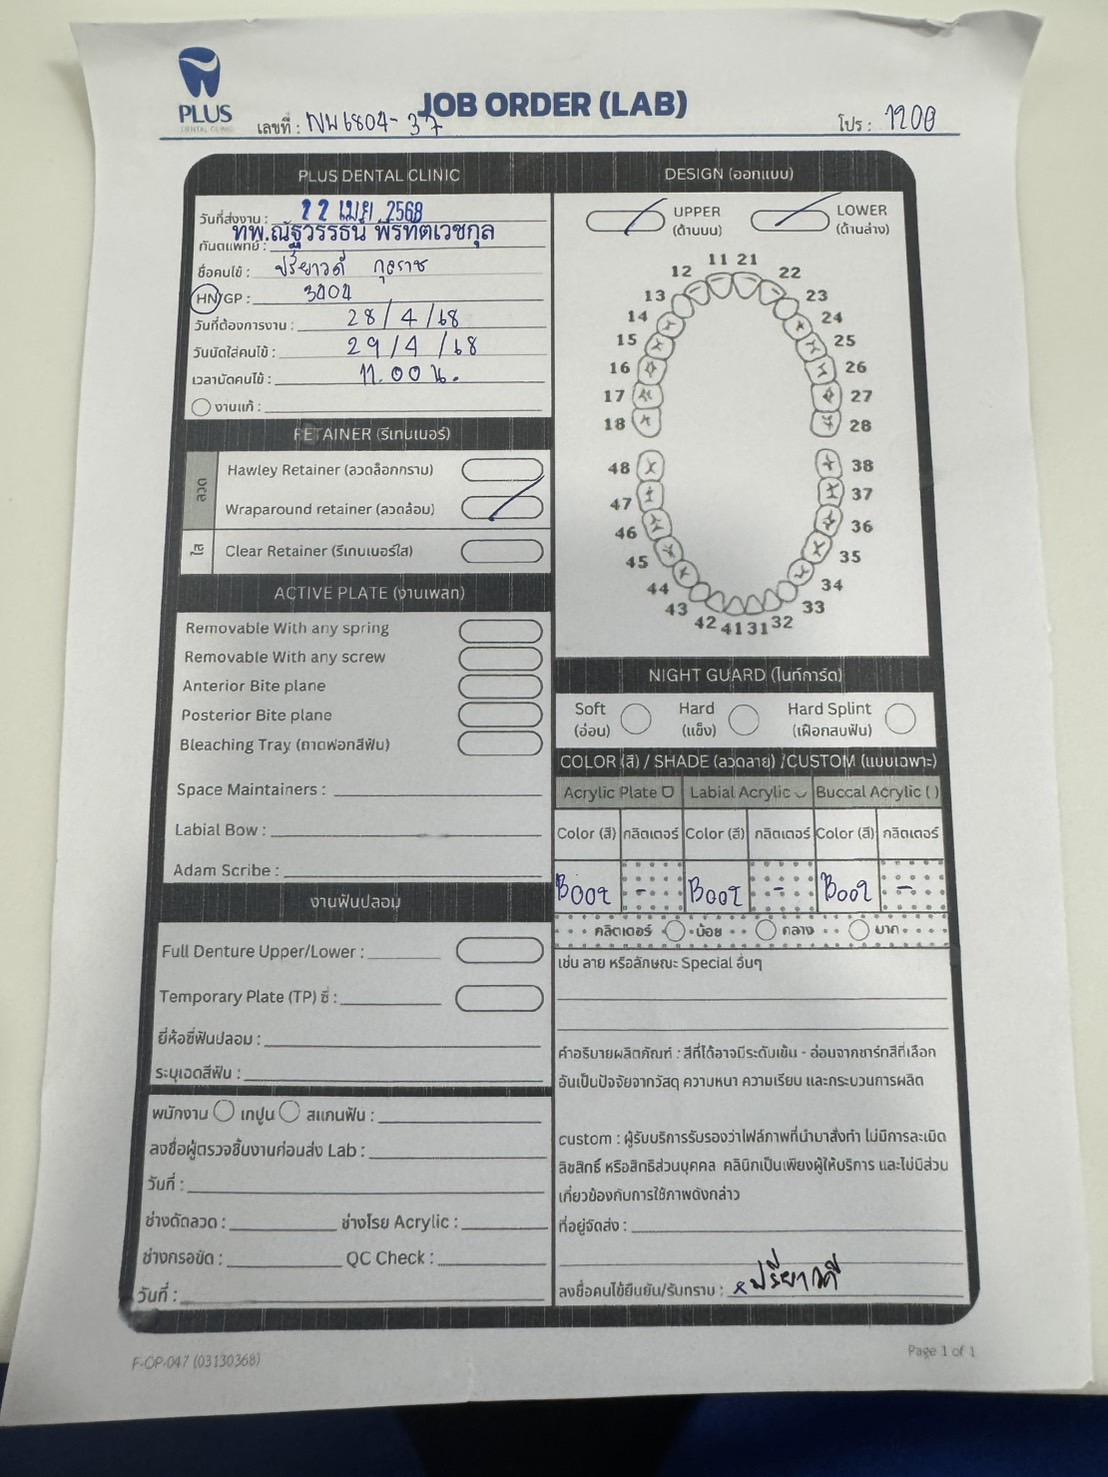 PLUS
DENTAL CLINIC
JOB ORDER (LAB)
เลขที่ : NW6804-37
โปร : 1200
PLUS DENTAL CLINIC
วันที่ส่งงาน : 22 เมย. 2568
ทันตแพทย์ : ทพ.ณัฐวรรธน์ พีรทิตเวชกุล
ชื่อคนไข้ : ปรียาวดี กุลราช
HN/GP : 3404
วันที่ต้องการงาน : 28/4/68
วันนัดใส่คนไข้ : 29/4/68
เวลานัดคนไข้ : 11.00 น.
งานแก้ :
RETAINER (รีเทนเนอร์)
ลวด
Hawley Retainer (ลวดล็อกกราม)
Wraparound retainer (ลวดล้อม)
ใส
Clear Retainer (รีเทนเนอร์ใส)
ACTIVE PLATE (งานเพลท)
Removable With any spring
Removable With any screw
Anterior Bite plane
Posterior Bite plane
Bleaching Tray (ถาดฟอกสีฟัน)
Space Maintainers :
Labial Bow :
Adam Scribe :
งานฟันปลอม
Full Denture Upper/Lower :
Temporary Plate (TP) ซี่ :
ยี่ห้อซี่ฟันปลอม :
ระบุเฉดสีฟัน :
พนักงาน เทปูน สแกนฟัน :
ลงชื่อผู้ตรวจชิ้นงานก่อนส่ง Lab :
วันที่ :
ช่างดัดลวด : ช่างโรย Acrylic :
ช่างกรอขัด : QC Check :
วันที่ :
DESIGN (ออกแบบ)
UPPER (ด้านบน)
LOWER (ด้านล่าง)
11 21
12 22
13 23
14 24
15 25
16 26
17 27
18 28
48 38
47 37
46 36
45 35
44 34
43 33
42 41 31 32
NIGHT GUARD (ไนท์การ์ด)
Soft (อ่อน)
Hard (แข็ง)
Hard Splint (เฝือกสบฟัน)
COLOR (สี) / SHADE (ลวดลาย) /CUSTOM (แบบเฉพาะ)
Acrylic Plate Labial Acrylic Buccal Acrylic ( )
Color (สี) กลิตเตอร์ Color (สี) กลิตเตอร์ Color (สี) กลิตเตอร์
B002 - B002 - B002 -
กลิตเตอร์ น้อย กลาง มาก
เช่น ลาย หรือลักษณะ Special อื่นๆ
คำอธิบายผลิตภัณฑ์ : สีที่ได้อาจมีระดับเข้ม - อ่อนจากชาร์ทสีที่เลือก
อันเป็นปัจจัยจากวัสดุ ความหนา ความเรียบ และกระบวนการผลิต
custom : ผู้รับบริการรับรองว่าไฟล์ภาพที่นำมาสั่งทำ ไม่มีการละเมิด
ลิขสิทธิ์ หรือสิทธิส่วนบุคคล คลินิกเป็นเพียงผู้ให้บริการ และไม่มีส่วน
เกี่ยวข้องกับการใช้ภาพดังกล่าว
ที่อยู่จัดส่ง :
ลงชื่อคนไข้ยืนยัน/รับทราบ : x ปรียาวดี
F-OP-047 (03130368)
Page 1 of 1